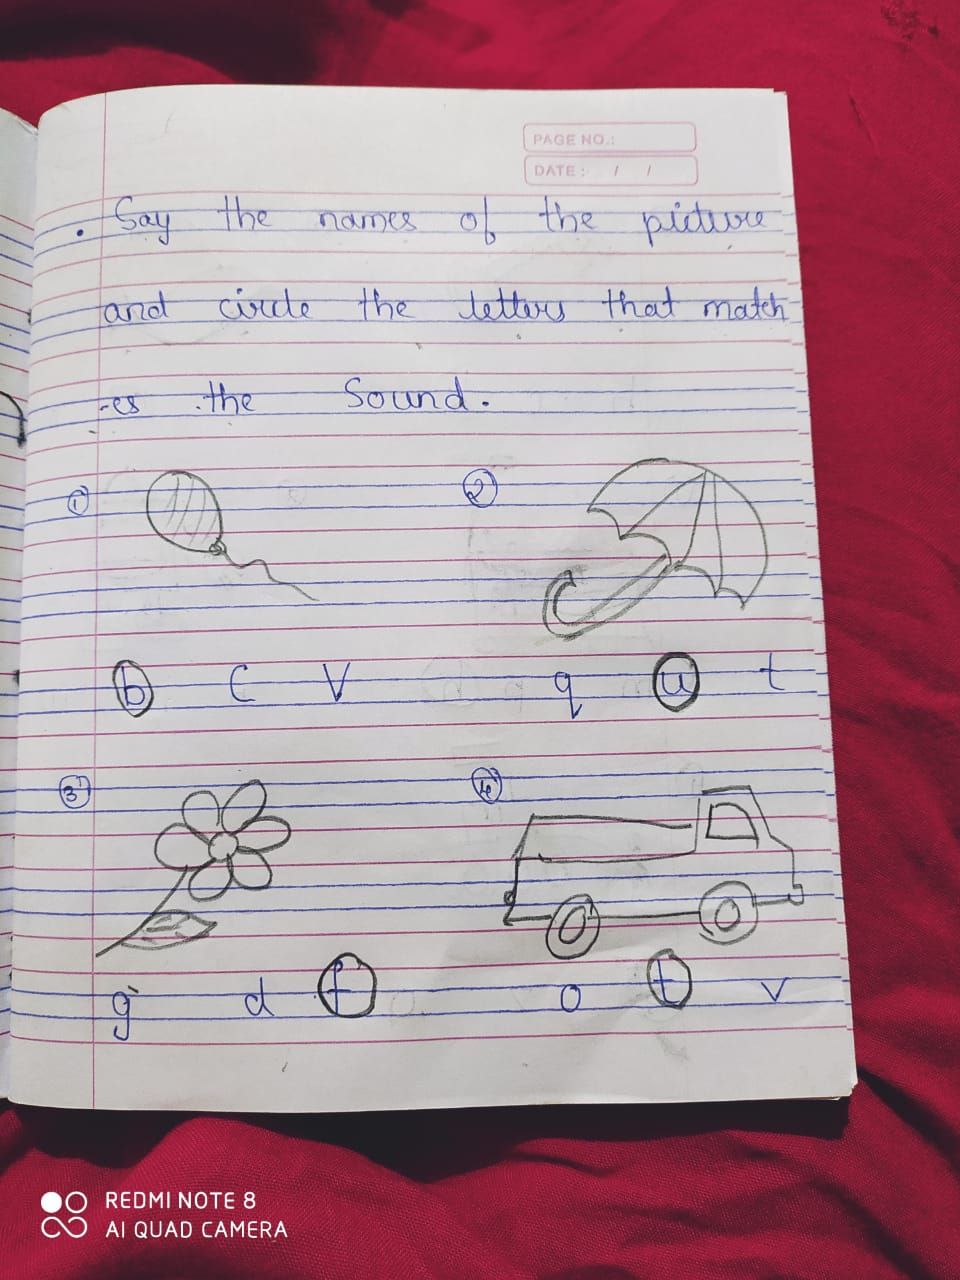 PAGE NO.:
DATE: / /
. Say the names of the picture
and circle the letters that match
-es the Sound.
1 2
b c v q u t
3 4
g d f o t v
REDMI NOTE 8
AI QUAD CAMERA